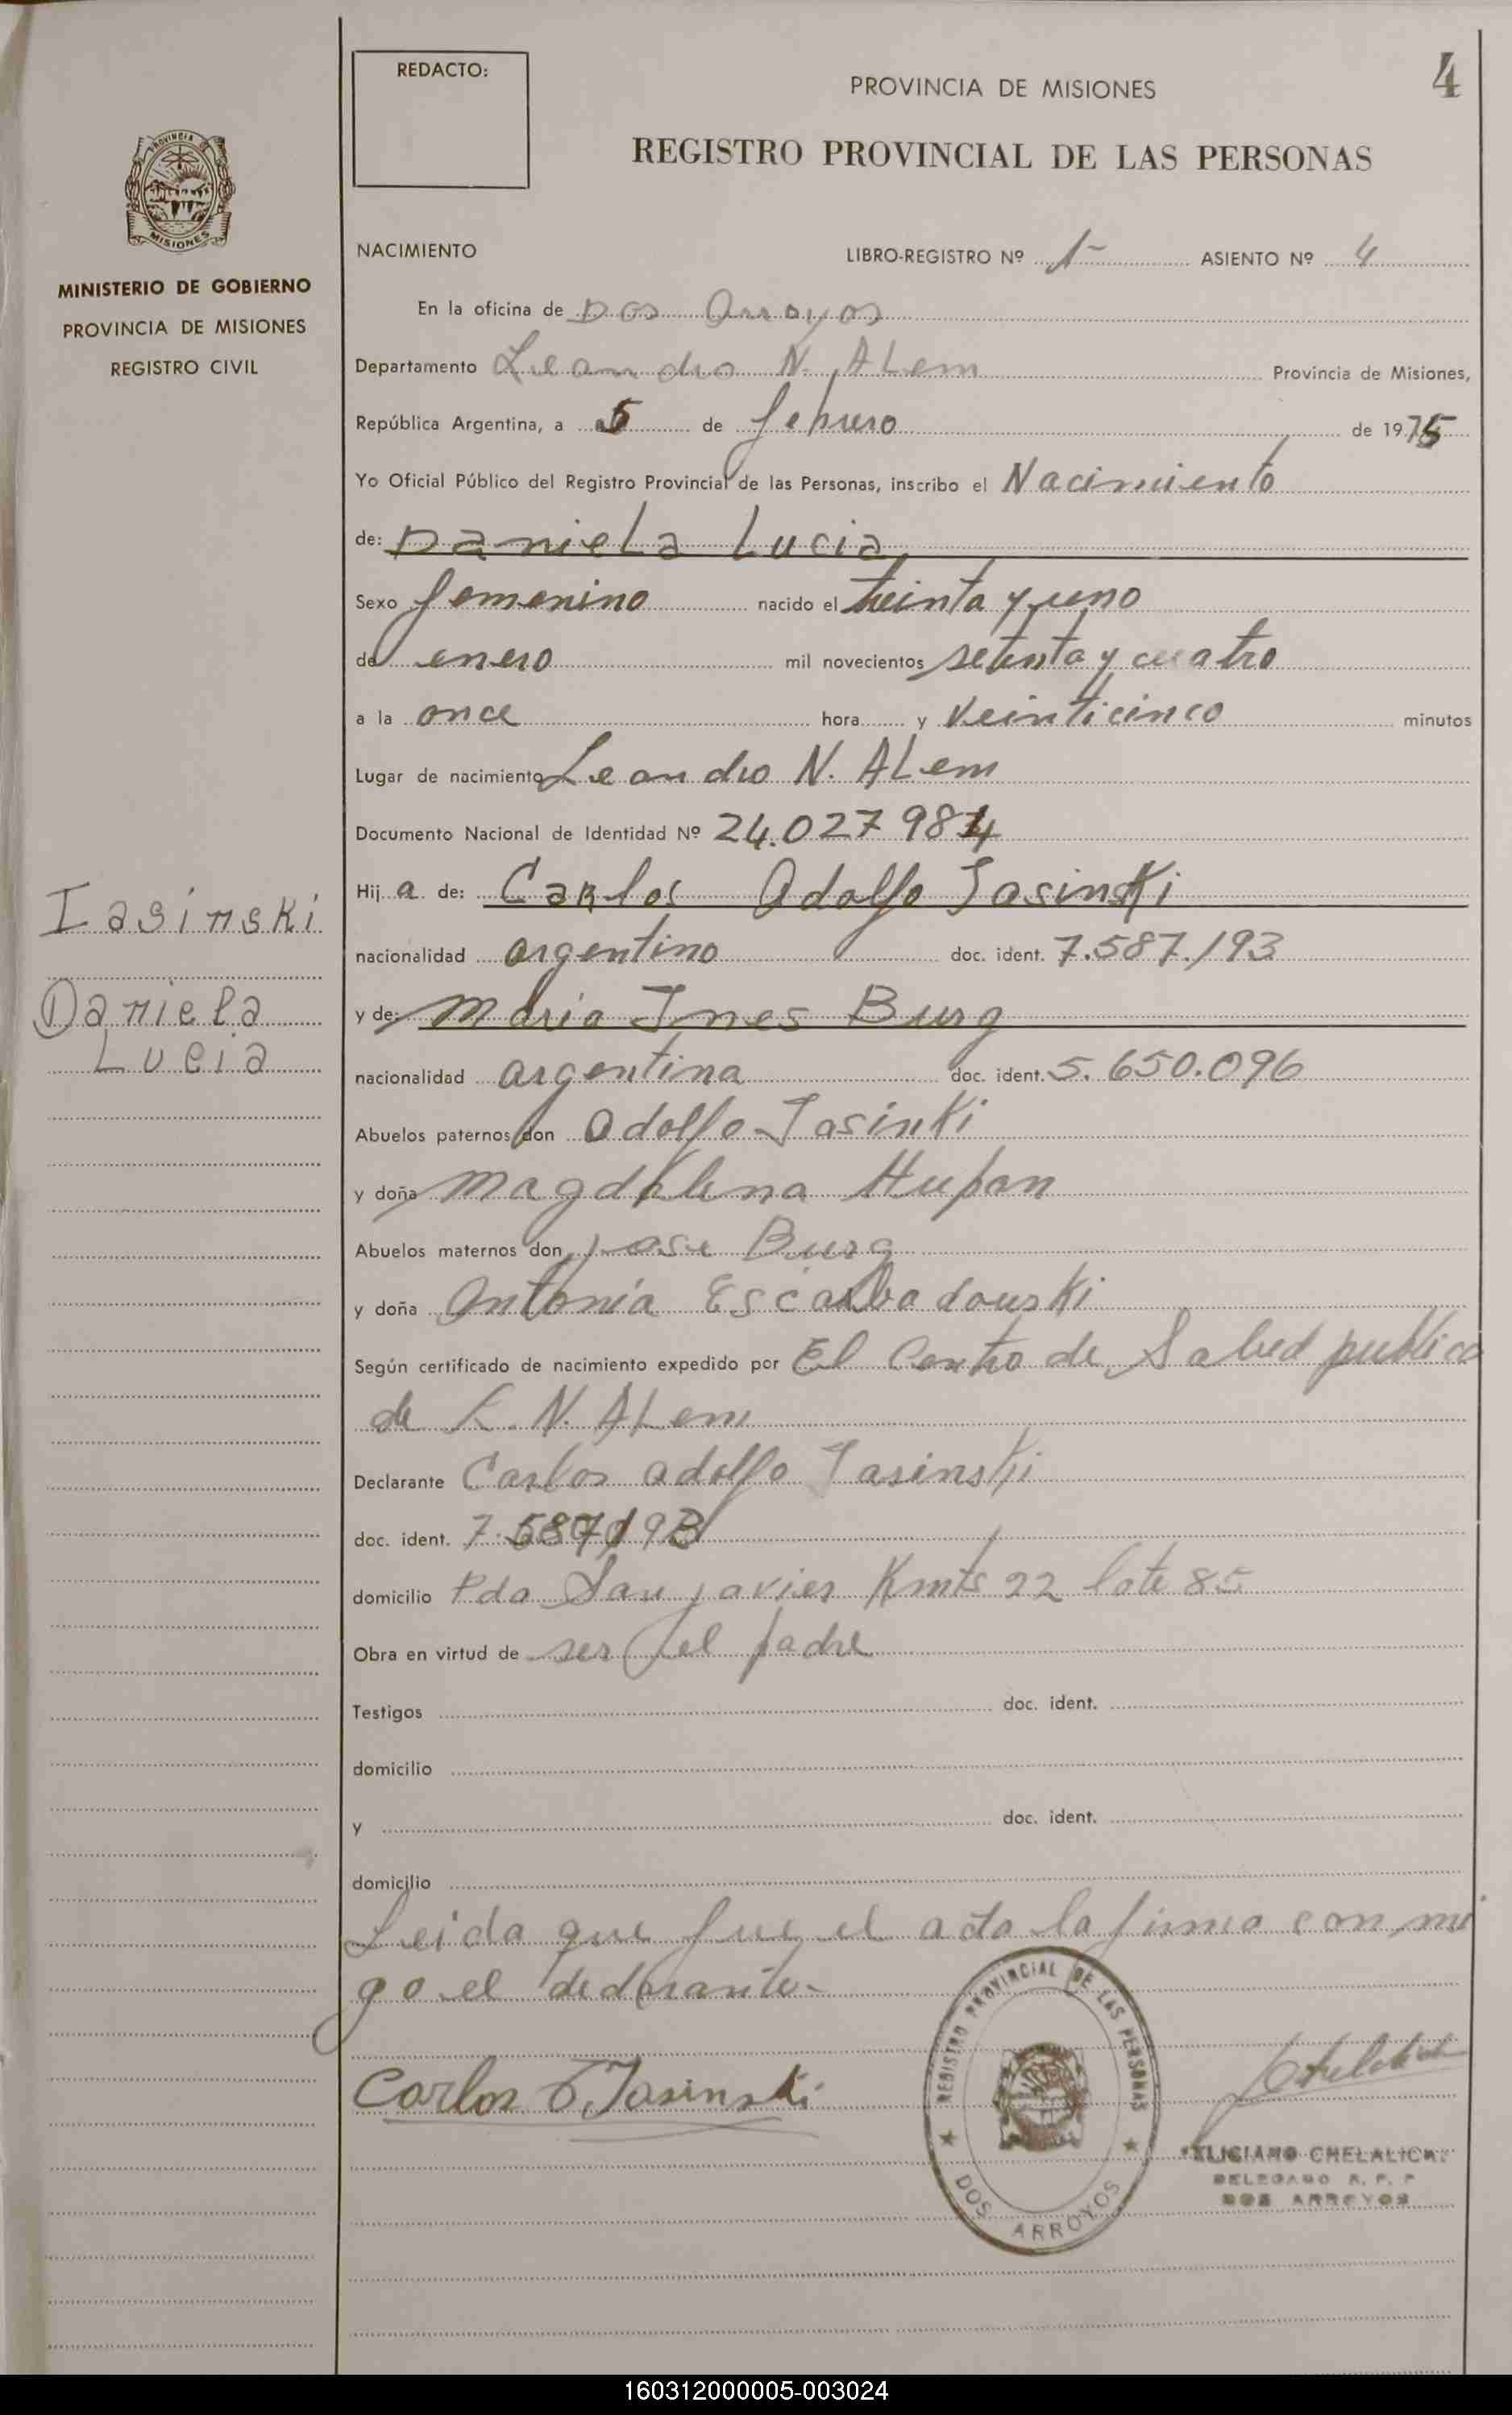 REDACTO:
PROVINCIA DE MISIONES
4
REGISTRO PROVINCIAL DE LAS PERSONAS
PROVINCIA
MISIONES
MINISTERIO DE GOBIERNO
PROVINCIA DE MISIONES
REGISTRO CIVIL
NACIMIENTO LIBRO-REGISTRO Nº 1- ASIENTO Nº 4
En la oficina de Dos Arroyos
Departamento Leandro N. ALem Provincia de Misiones,
República Argentina, a 5 de febrero de 1975
Yo Oficial Público del Registro Provincial de las Personas, inscribo el Nacimiento
de: Daniela Lucia
Sexo femenino nacido el treinta y uno
de enero mil novecientos setenta y cuatro
a la once hora y veinticinco minutos
Lugar de nacimiento Leandro N. ALem
Documento Nacional de Identidad Nº 24.027984
Hij a de: Carlos Adolfo Iasinski
Iasinski
nacionalidad argentino doc. ident. 7.587.193
Daniela
y de: Maria Ines Burg
Lucia
nacionalidad argentina doc. ident. 5.650.096
Abuelos paternos don Adolfo Iasinki
y doña Magdalena Hupan
Abuelos maternos don jose Burg
y doña Antonia Escarbadouski
Según certificado de nacimiento expedido por El Centro de Salud publica
de L. N. ALem
Declarante Carlos adolfo Iasinski
doc. ident. 7.587193
domicilio Pda San javier Kmts 22 lote 85
Obra en virtud de ser el padre
Testigos doc. ident.
domicilio
y doc. ident.
domicilio
Leida que fue el acta la firma con mi
go el declarante-
Carlos A. Iasinski
REGISTRO PROVINCIAL DE LAS PERSONAS
DOS ARROYOS
FELICIANO CHELALICHE
DELEGADO R. P. P
DOS ARROYOS
160312000005-003024